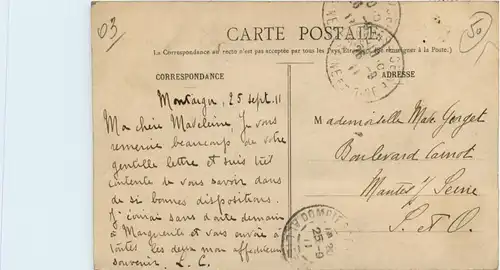 03
50
CARTE POSTALE
(La Correspondance au recto n'est pas acceptée par tous les Pays Étrangers. (Se renseigner à la Poste.)
CORRESPONDANCE
ADRESSE
Montaigu, 25 sept. 11
Ma chère Madeleine, Je vous
remercie beaucoup de votre
gentille lettre et suis très
contente de vous savoir dans
de si bonnes dispositions.
J'écrirai sans doute demain
à Marguerite et vous envoie à
toutes les deux mon affectueux
souvenir. L. C.
Mademoiselle Mad. Gorget
Boulevard Carnot
Mantes s/ Seine
S. et O.